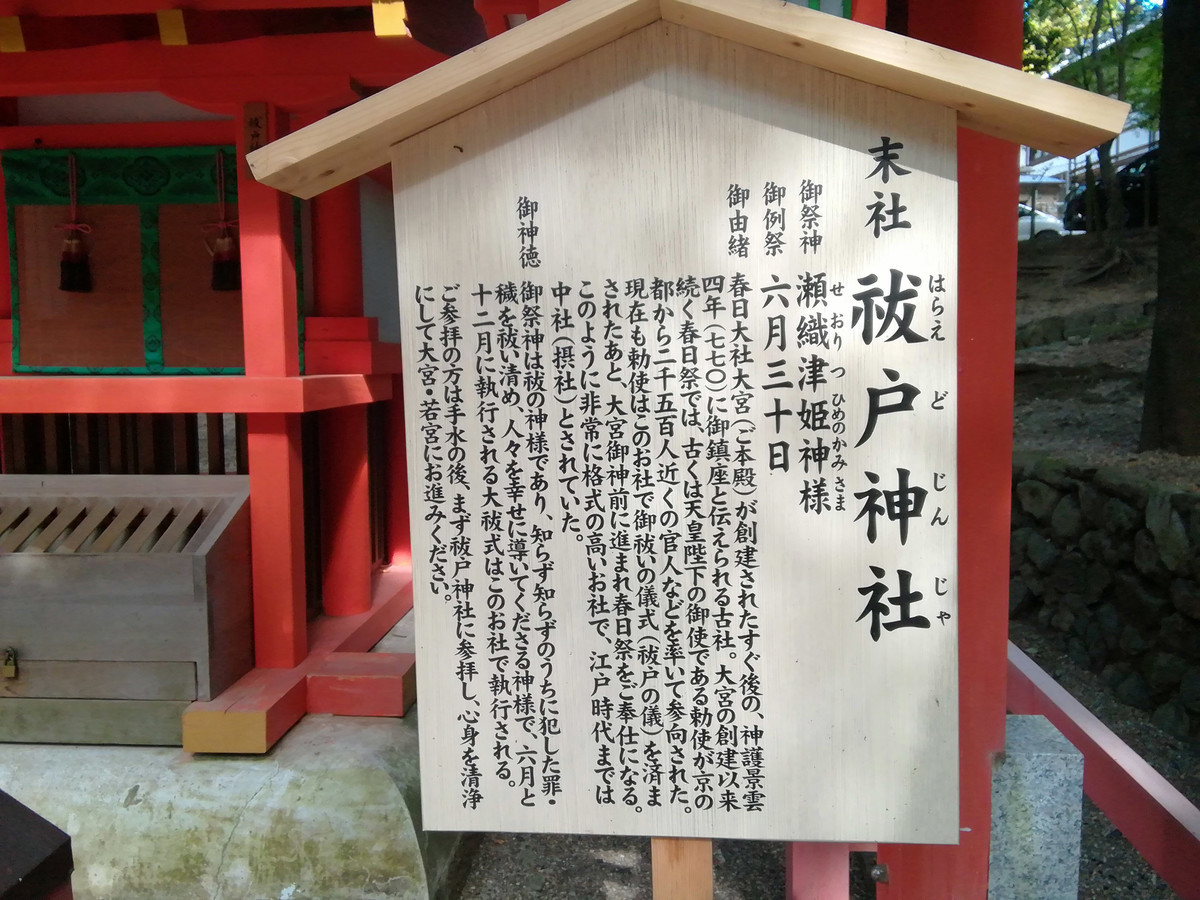 末社 祓戸神社
はらえ ど じんじゃ
御祭神 瀬織津姫神様
せおりつ ひめのかみ さま
御例祭 六月三十日
御由緒 春日大社大宮(ご本殿)が創建されたすぐ後の、神護景雲
四年(七七〇)に御鎮座と伝えられる古社。大宮の創建以来
続く春日祭では、古くは天皇陛下の御使である勅使が京の
都から二千五百人近くの官人などを率いて参向された。
現在も勅使はこのお社で御祓いの儀式(祓戸の儀)を済ま
されたあと、大宮御神前に進まれ春日祭をご奉仕になる。
このように非常に格式の高いお社で、江戸時代までは
中社(摂社)とされていた。
御神徳 御祭神は祓の神様であり、知らず知らずのうちに犯した罪・
穢を祓い清め、人々を幸せに導いてくださる神様で、六月と
十二月に執行される大祓式はこのお社で執行される。
ご参拝の方は手水の後、まず祓戸神社に参拝し、心身を清浄
にして大宮・若宮にお進みください。